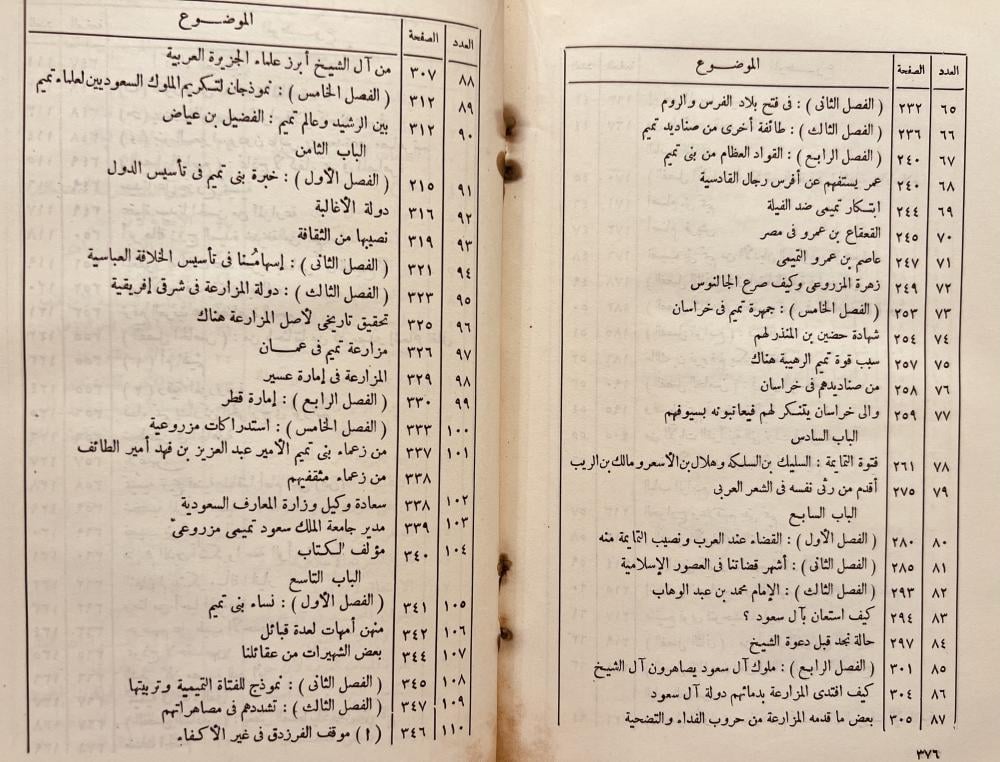 العدد الصفحة الموضـــــوع
٦٥ ٢٣٢ ( الفصل الثانى ) : فى فتح بلاد الفرس والروم
٦٦ ٢٣٦ ( الفصل الثالث ) : طائفة أخرى من صناديد تميم
٦٧ ٢٤٠ ( الفصل الرابع ) : القواد العظام من بنى تميم
٦٨ ٢٤٠ عمر يستفهم عن أفرس رجال القادسية
٦٩ ٢٤٤ ابتكار تميمى ضد الفيلة
٧٠ ٢٤٥ القعقاع بن عمرو فى مصر
٧١ ٢٤٧ عاصم بن عمرو التميمى
٧٢ ٢٤٩ زهرة المزروعى وكيف صرع الجالنوس
٧٣ ٢٥٣ ( الفصل الخامس ) : جمهرة تميم فى خراسان
٧٤ ٢٥٤ شهادة حضين بن المنذر لهم
٧٥ ٢٥٧ سبب قوة تميم الرهيبة هناك
٧٦ ٢٥٨ من صناديدهم فى خراسان
٧٧ ٢٥٩ والى خراسان يتنكر لهم فيعاتبونه بسيوفهم
الباب السادس
٧٨ ٢٦١ فتوة التمايمة : السليك بن السلكة وهلال بن الأسعر ومالك بن الريب
٧٩ ٢٧٥ أقدم من رثى نفسه فى الشعر العربى
الباب السابع
٨٠ ٢٨٠ ( الفصل الأول ) : القضاء عند العرب ونصيب التمايمة منه
٨١ ٢٨٥ ( الفصل الثانى ) : أشهر قضاتنا فى العصور الإسلامية
٨٢ ٢٩٣ ( الفصل الثالث ) : الإمام محمد بن عبد الوهاب
٨٣ ٢٩٤ كيف استعان بآل سعود ؟
٨٤ ٢٩٧ حالة نجد قبل دعوة الشيخ
٨٥ ٣٠١ ( الفصل الرابع ) : ملوك آل سعود يصاهرون آل الشيخ
٨٦ ٣٠٤ كيف افتدى المزارعة بدمائهم دولة آل سعود
٨٧ ٣٠٥ بعض ما قدمه المزارعة من حروب الفداء والتضحية
٣٧٦
العدد الصفحة الموضـــــوع
٨٨ ٣٠٧ من آل الشيخ أبرز علماء الجزيرة العربية
٨٩ ٣١٢ ( الفصل الخامس ) : نموذجان لتكريم الملوك السعوديين لعلماء تميم
٩٠ ٣١٢ بين الرشيد وعالم تميم : الفضيل بن عياض
الباب الثامن
٩١ ٢١٥ ( الفصل الأول ) : خبرة بنى تميم فى تأسيس الدول
٩٢ ٣١٦ دولة الأغالبة
٩٣ ٣١٩ نصيبها من الثقافة
٩٤ ٣٢١ ( الفصل الثانى ) : إسهامُنا فى تأسيس الخلافة العباسية
٩٥ ٣٢٣ ( الفصل الثالث ) : دولة المزارعة فى شرقى إفريقية
٩٦ ٣٢٥ تحقيق تاريخى لأصل المزارعة هناك
٩٧ ٣٢٦ مزارعة تميم فى عمـــان
٩٨ ٣٢٩ المزارعة فى إمارة عسير
٩٩ ٣٣٠ ( الفصل الرابع ) : إمارة قطر
١٠٠ ٣٣٣ ( الفصل الخامس ) : استدراكات مزروعية
١٠١ ٣٣٧ من زعماء بنى تميم الأمير عبد العزيز بن فهد أمير الطائف
٣٣٨ من زعماء مثقفيهم
١٠٢ ٣٣٨ سعادة وكيل وزارة المعارف السعودية
١٠٣ ٣٣٩ مدير جامعة الملك سعود تميمى مزروعىّ
١٠٤ ٣٤٠ مؤلف الكتاب
الباب التاسع
١٠٥ ٣٤١ ( الفصل الأول ) : نساء بنى تميم
١٠٦ ٣٤٢ منهن أمهات لعدة قبائل
١٠٧ ٣٤٤ بعض الشهيرات من عقائلنا
١٠٨ ٣٤٥ ( الفصل الثانى ) : نموذج للفتاة التميمية وتربيتها
١٠٩ ٣٤٧ ( الفصل الثالث ) : تشددهم فى مصاهراتهم
١١٠ ٣٤٦ ( ا ) موقف الفرزدق فى غير الأكفاء